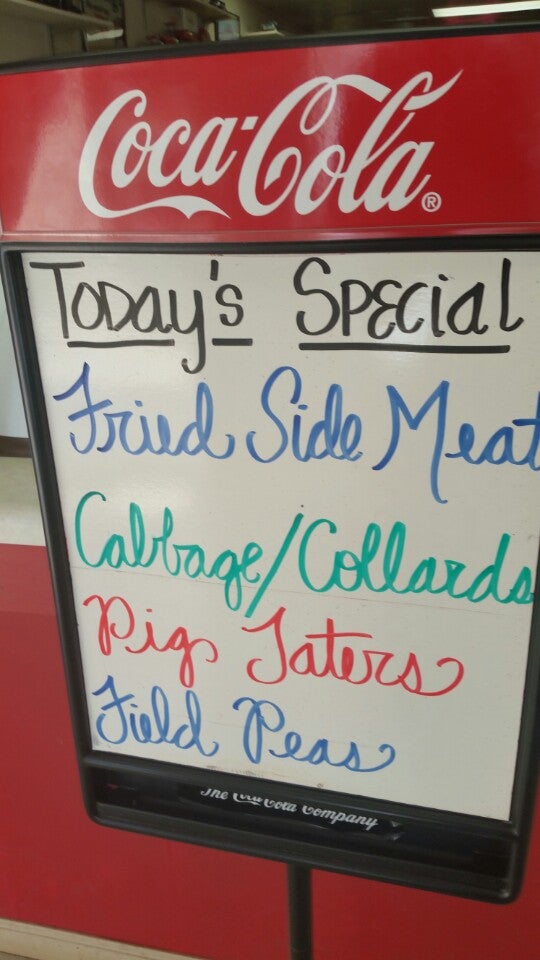 Coca-Cola®
Today's Special
Fried Side Meat
Cabbage/Collards
Pig Taters
Field Peas
The Coca-Cola Company